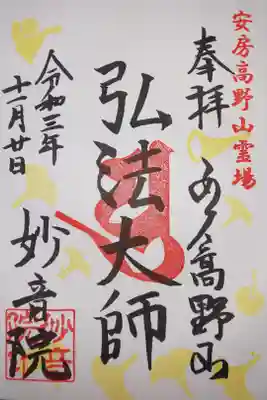 安房高野山霊場
奉拝
高野山
弘法大師
妙音院
令和三年
十一月廿日